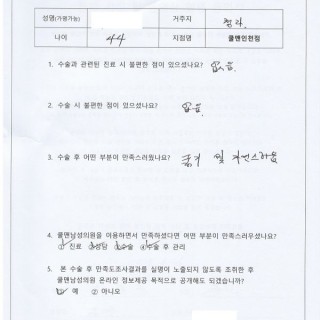 성명(가명가능) 거주지 청라.
나이 44 지점명 쿨맨인천점
1. 수술과 관련된 진료 시 불편한 점이 있으셨나요? 없음.
2. 수술 시 불편한 점이 있으셨나요? 없음.
3. 수술 후 어떤 부분이 만족스러웠나요? 굵기 및 자연스러움
4. 쿨맨남성의원을 이용하면서 만족하셨다면 어떤 부분이 만족스러우셨나요?
① 진료 ② 상담 ③ 수술 ④ 수술 후 관리
5. 본 수술 후 만족도조사결과를 실명이 노출되지 않도록 조취한 후
쿨맨남성의원 온라인 정보제공 목적으로 공개해도 되겠습니까?
① 예 ② 아니오